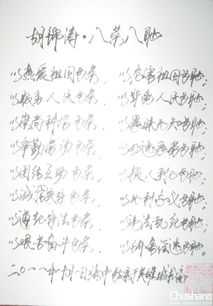 胡锦涛·八荣八耻
以热爱祖国为荣，以危害祖国为耻
以服务人民为荣，以背离人民为耻
以崇尚科学为荣，以愚昧无知为耻
以辛勤劳动为荣，以好逸恶劳为耻
以团结互助为荣，以损人利己为耻
以诚实守信为荣，以见利忘义为耻
以遵纪守法为荣，以违法乱纪为耻
以艰苦奋斗为荣，以骄奢淫逸为耻
Chushan